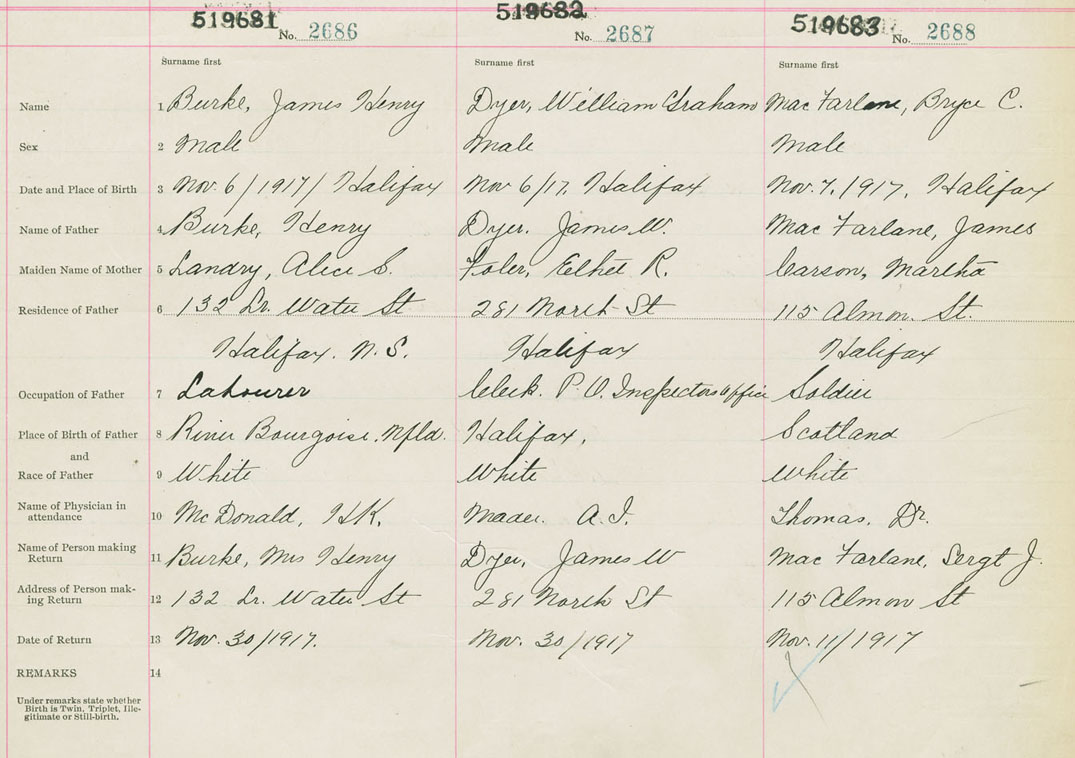 519681 519682 519683
No. 2686 No. 2687 No. 2688
Surname first Surname first Surname first
Name 1 Burke, James Henry Dyer, William Graham Mac Farlane, Bryce C.
Sex 2 Male Male Male
Date and Place of Birth 3 Nov. 6/1917/ Halifax Nov 6/17, Halifax Nov. 7./1917, Halifax
Name of Father 4 Burke, Henry Dyer. James W. Mac Farlane, James
Maiden Name of Mother 5 Landry, Alice S. R. Carson, Martha
Residence of Father 6 132 Lr. Water St 281 North St 115 Almon. St.
Halifax. N.S. Halifax Halifax
Occupation of Father 7 Labourer Clerk. P.O. Inspectors Office Soldier
Place of Birth of Father 8 River Bourgoise. Nfld. Halifax, Scotland
and
Race of Father 9 White White White
Name of Physician in
attendance 10 McDonald, H.K. Mader. A.I. Thomas, Dr.
Name of Person making
Return 11 Burke, Mrs Henry Dyer, James W Mac Farlane, Sergt J.
Address of Person mak-
ing Return 12 132 Lr. Water St 281 North St 115 Almon St
Date of Return 13 Nov. 30/1917. Nov. 30/1917 Nov. 11/1917
REMARKS 14
Under remarks state whether
Birth is Twin, Triplet, Ille-
gitimate or Still-birth.